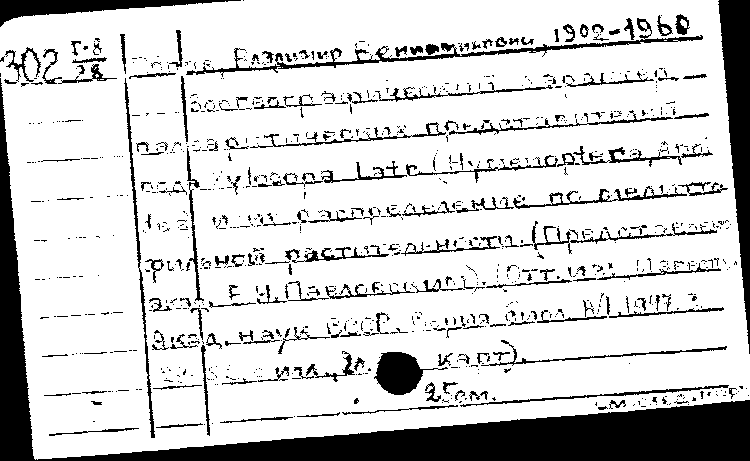 302 Г-8/28 Попов, Владимир Вениаминович, 1902-1960
Зоогеографический характер
палеарктических представителей
рода Xylocopa Latr (Hymenoptera, Apoi
dea) и их распределение по мелитто
фильной растительности. (Представлено
акад. Е.Н.Павловским). (Отт. из: Известия
Акад. наук СССР. Серия биол. №1. 1947. З.
с илл., 2л. карт).
25см.
см. след. карт